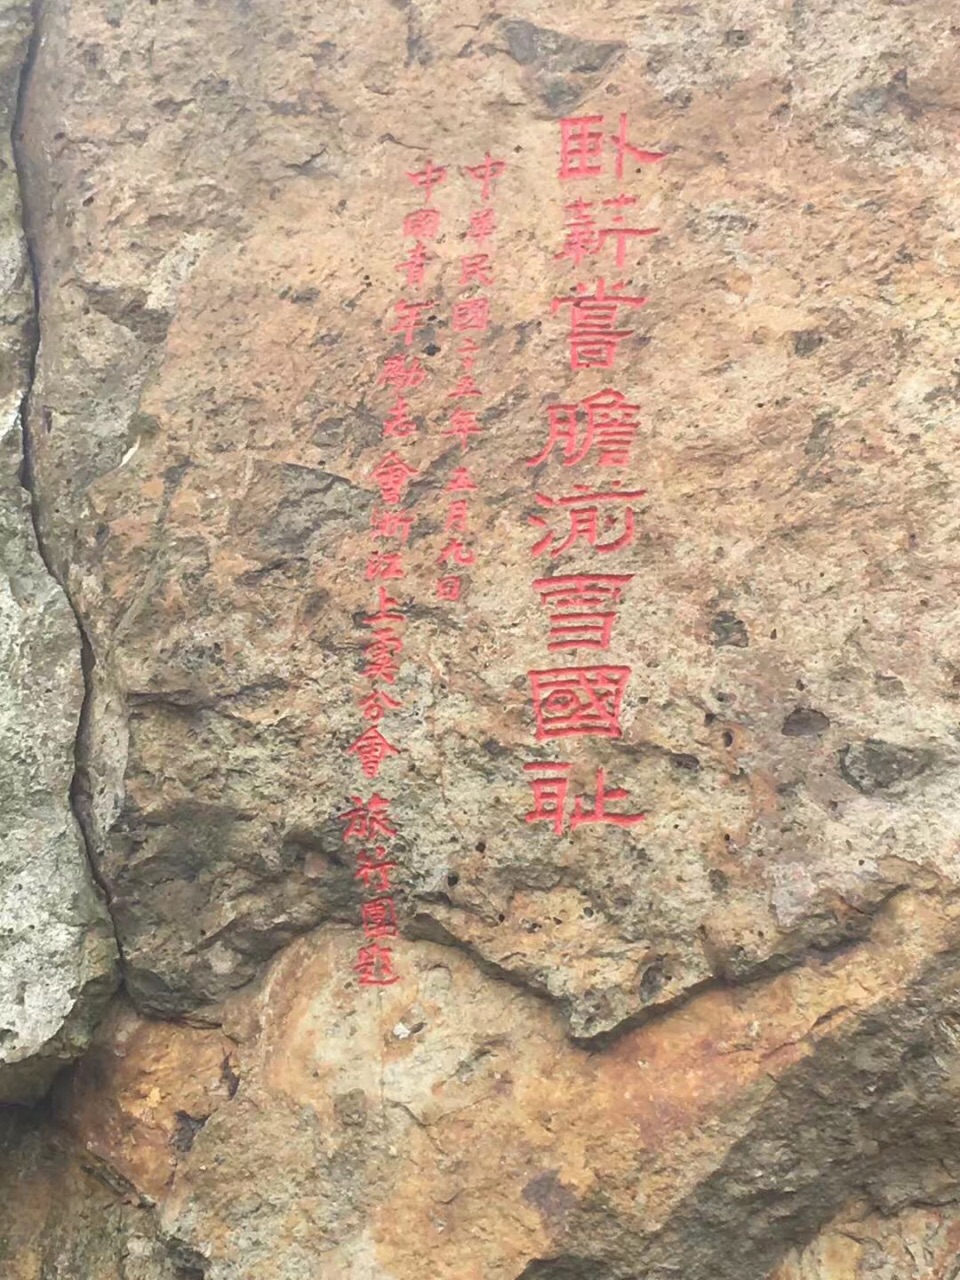 臥薪嘗膽湔雪國恥
中華民國二十五年五月九日
中國青年勵志會浙江上虞分會旅行團題